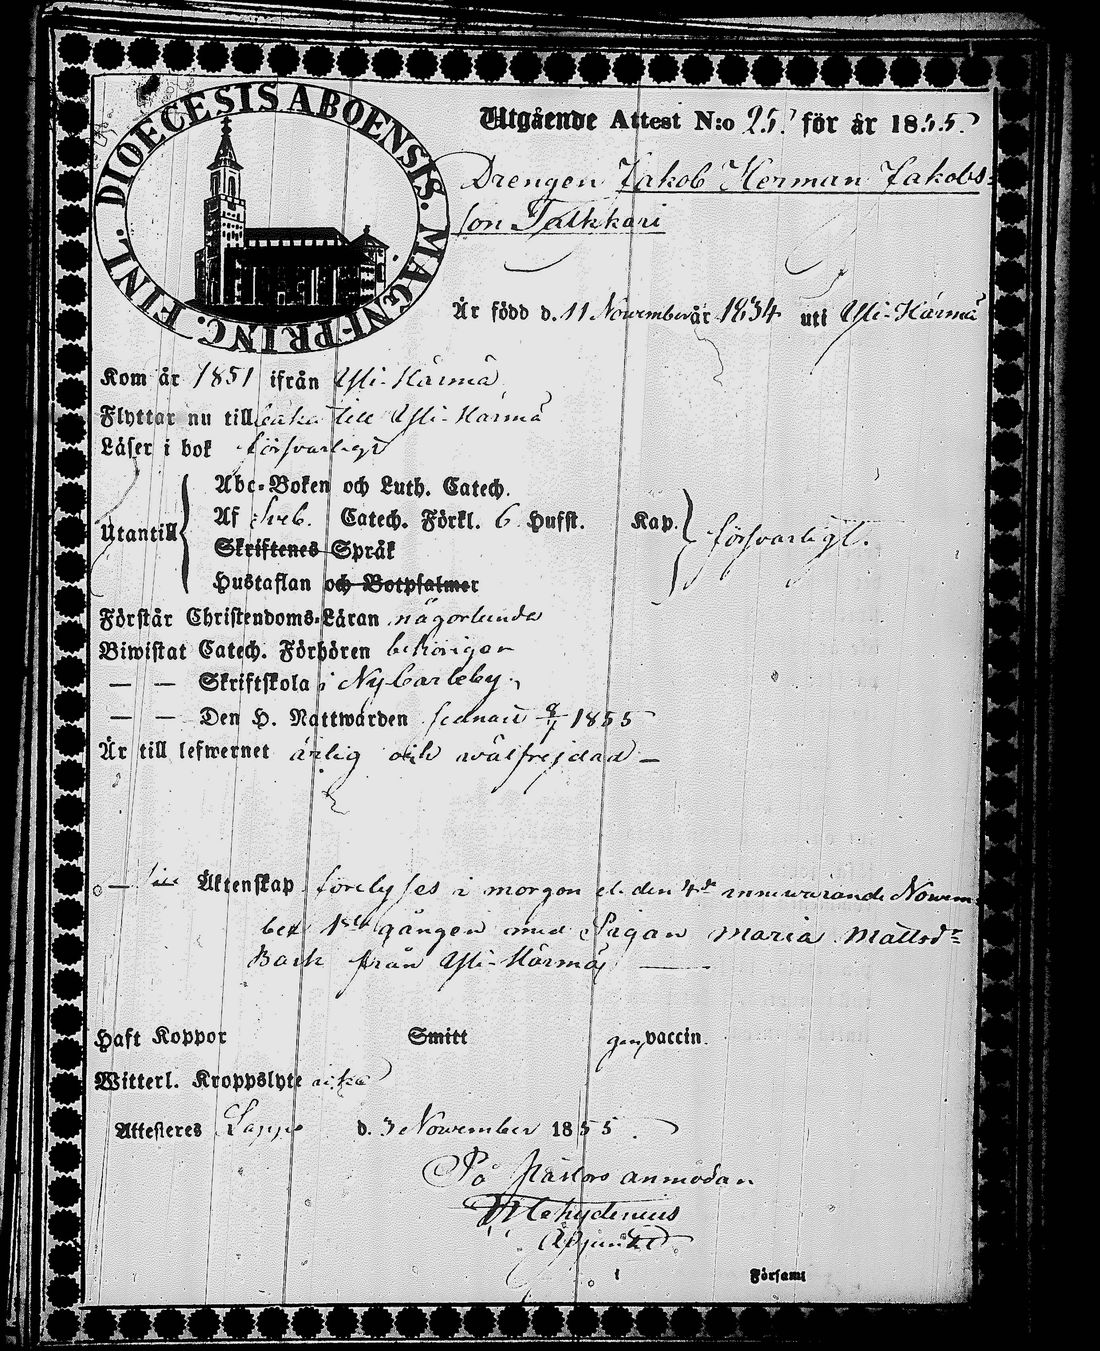 DIOECESIS ABOENSIS. MAGNI-PRINC. FINL.
Utgående Attest N:o 25. för år 1855.
Drengen Jakob Herman Jakobs-
son Talkkari
Är född d. 11 November år 1834 uti Yli-Härmä
Kom år 1851 ifrån Yli-Härmä
Flyttar nu till till Yli-Härmä
Läser i bok försvarligt
Utantill
Abc-Boken och Luth. Catech.
Af Sveb. Catech. Förkl. 6 Hufst. Kap. försvarligt.
Skriftenes Språk
Hustaflan och Botpsalmer
Förstår Christendoms-Läran någorlunda
Biwistat Catech. Förhören behörigen
— — Skriftskola i NyCarleby.
— — Den H. Nattwarden sednast 8/7 1855
Är till lefwernet ärlig och wälfrejdad —
— till Äktenskap förelyses i morgon el. den 4de innewarande Novem
ber 1sta gången med Pigan Maria Mattsdr
Back från Yli-Härmä —
Haft Koppor Smitt gen vaccin.
Witterl. Kroppslyte icke
Attesteres Lappo d. 3 November 1855.
På Pastors anmodan
Chydenius
Adjunkt
i Församl